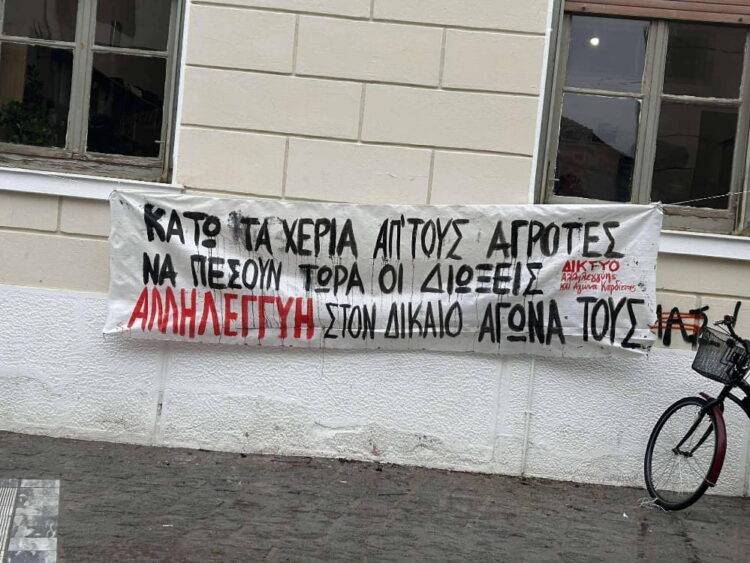 ΚΑΤΩ ΤΑ ΧΕΡΙΑ ΑΠ'ΤΟΥΣ ΑΓΡΟΤΕΣ
ΝΑ ΠΕΣΟΥΝ ΤΩΡΑ ΟΙ ΔΙΩΞΕΙΣ
ΑΛΛΗΛΕΓΓΥΗ ΣΤΟΝ ΔΙΚΑΙΟ ΑΓΩΝΑ ΤΟΥΣ
ΔΙΚΤΥΟ
Αλληλεγγύης
και Αγώνα Καρδίτσας